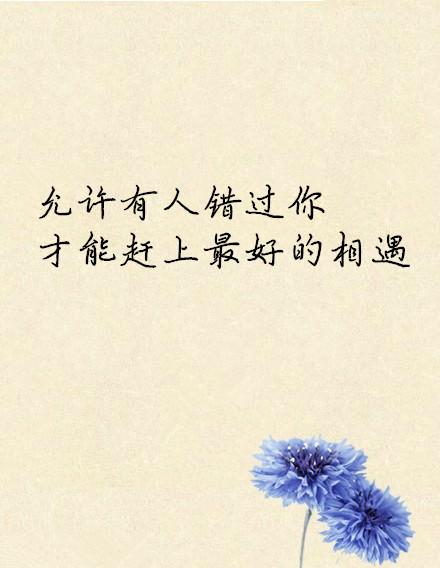 允许有人错过你
才能赶上最好的相遇